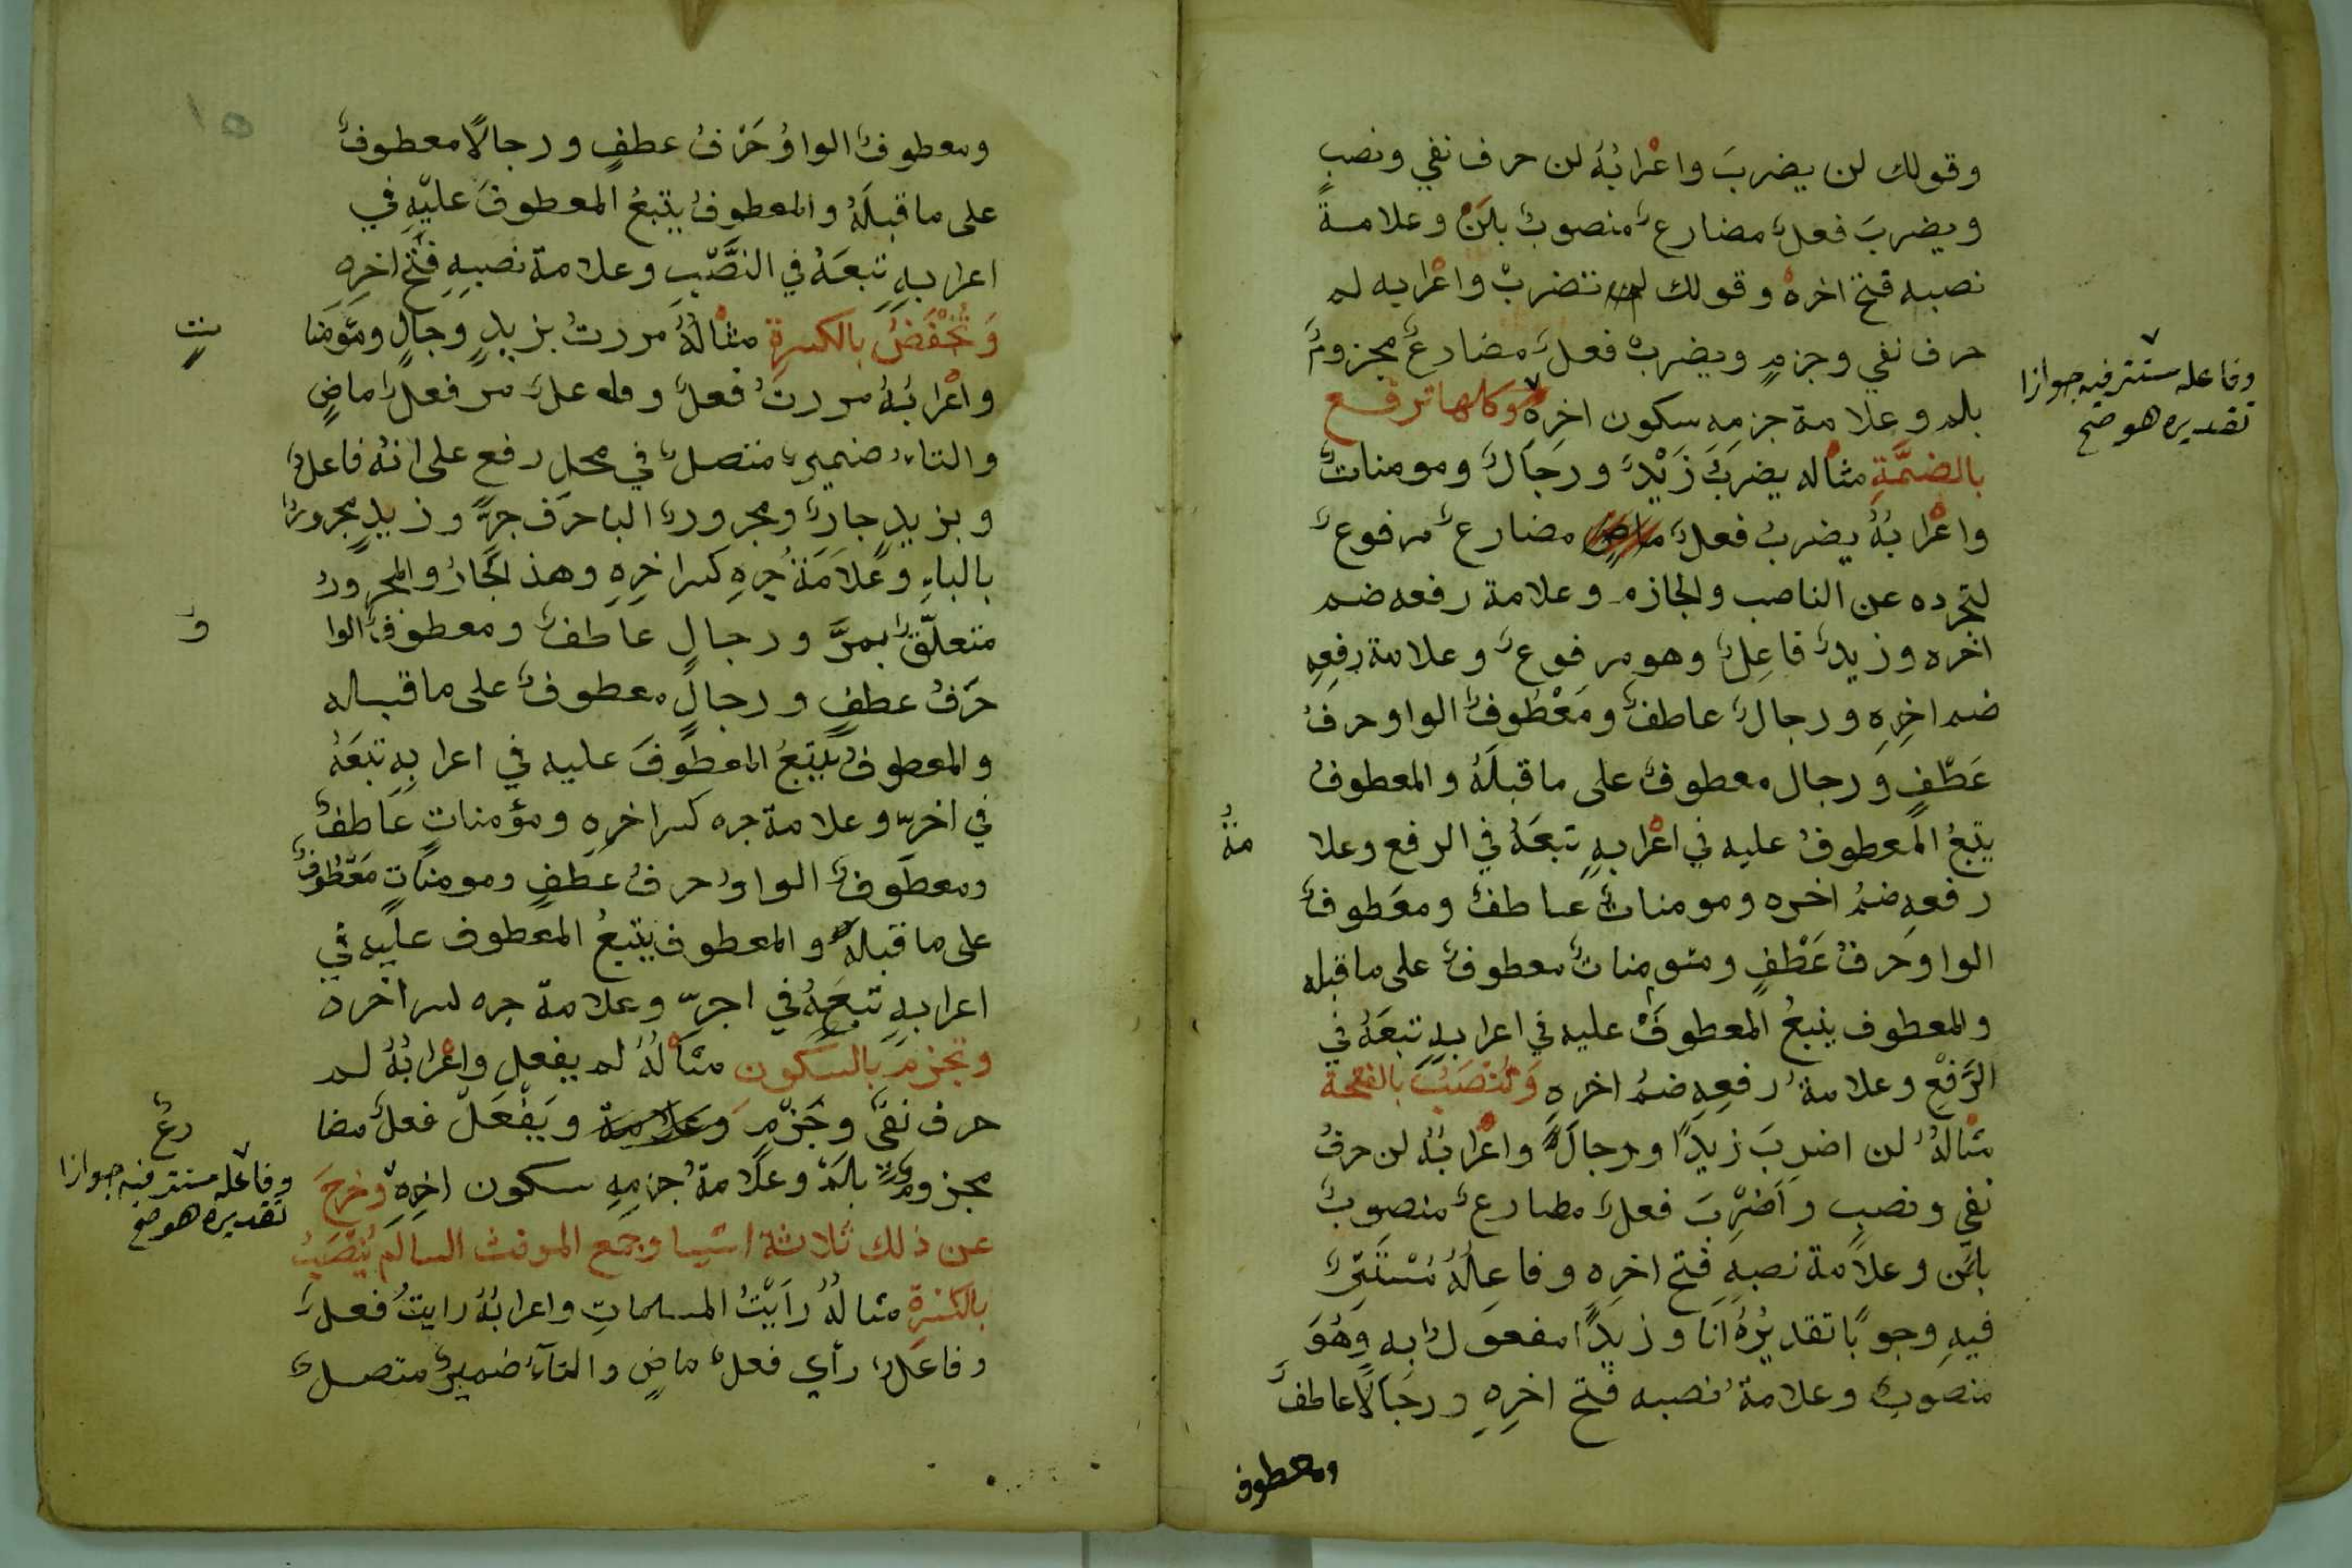 وقولك لن يضربَ واعْرابُهُ لن حرف نفي ونصبٍ
ويضربَ فعلٌ مضارعٌ منصوبٌ بلَنْ وعلامة
نصبه فتح اخره وقولك لم تضربْ واعْرابه لم
حرف نفي وجزمٍ ويضربْ فعلٌ مضارعٌ مجزومٌ
بلم وعلامة جزمِهِ سكون اخرِهِ وكلها ترفع
وفاعله مستتر فيه جوازا
تقديره هو صح
بالضمَّةِ مثاله يضربُ زَيْدٌ ورجَالٌ ومومناتٌ
واعْرابُهُ يضربُ فعلٌ ماضٍ مضارعٌ مرفوعٌ
لتجرده عن الناصب والجازم وعلامة رفعه ضم
اخره وزيدٌ فاعِلٌ وهو مرفوعٌ وعلامة رفعِهِ
ضم اخِرِهِ ورجالٌ عاطفٌ ومَعْطُوفٌ الواو حرفُ
عَطْفٍ ورجال معطوفٌ على ما قبلَهُ والمعطوفُ
يتبعُ المعطوفُ عليه في اعْرابِهِ تبعَهُ في الرفع وعلا
مةُ
رفعِهِ ضمُ اخره ومومناتٌ عاطفٌ ومعَطوفٌ
الواو حَرفُ عَطْفٍ ومئومناتٌ معطوفٌ على ما قبله
والمعطوف يتبعُ المعطوفَ عليه في اعرابِهِ تبعَهُ في
الرَّفْعِ وعلامةُ رفعِهِ ضمُ اخرِهِ وَتُنْصَبُ بالفتحة
مثالهُ لن اضربَ زيدًا ورجالًا واعْرابُهُ لن حرفُ
نفي ونصبٍ واَضْرِبَ فعلٌ مضارعٌ منصوبٌ
بلَن وعلامة نصبِهِ فتح اخرِهِ وفاعِلُهُ مُسْتَتِرٌ
فيهِ وجوبًا تقديرُهُ اَنَا وزيدًا مفعولٌ به وهُوَ
منصوبٌ وعلامةُ نصبه فتح اخرِهِ ورجَالًا عاطفٌ
ومعطوف
ومعطوفٌ الواوُ حَرْفُ عطفٍ ورجالًا معطوفٌ
على ما قبلَهُ والمعطوفُ يتبعُ المعطوفَ عليْهِ في
اعرابِهِ تبعَهُ في النصْبِ وعلامة نصبِهِ فتْح اخرِهِ
وَتُخْفَضُ بالكسرةِ مثالُهُ مررتُ بزيدٍ وجالٍ ومؤمنا
تٍ
واعْرابُهُ مررتُ فعلٌ وفاعلٌ مر فعلٌ ماضٍ
والتاءُ ضميرٌ متصلٌ في محل رفع على انهُ فاعلٌ
وبزيدٍ جارٌ ومجرورٌ البا حرَف جرٍّ وزيدٍ مجرورٌ
بالباءِ وعَلاَمَةُ جرِهِ كسر اخرِهِ وهذ لجَارُ والمجرورُ
متعلّقٌ بمرَّ ورجالٍ عاطفٌ ومعطوفٌ الوا
وُ
حَرفُ عطفٍ ورجالٍ معطوفٌ على ما قبله
والمعطوفُ يَتبعُ المعطوفَ عليه في اعرابِهِ تبعَهُ
في اخرّ وعلامة جره كسر اخرِهِ ومؤمناتٍ عَاطفٌ
ومعطوفٌ الواوُ حرفُ عَطفٍ ومومنَاتٍ مَعْطُوفٌ
على ما قبله والمعطوف يتبعُ المعطوف عليه في
اعرابِهِ تبعَهُ في اجرّ وعلامة جره كسر اخره
وتجزمَ بالسكون مثالُهُ لم يفعل واعْرابُهُ لم
حرف نفي وجَزْمٍ وعلامة ويَفْعَلْ فعلٌ مضا
رعٌ
مجزومٌ بالَمْ وعلَامةُ جزمِهِ سكون اخِرِهِ وخرجَ
وفاعله مستتر فيه جوازا
تقديره هو صح
عن ذلك ثلاثة اشيا وجمع الموفث السالم يُنْصَبُ
بالكسرةِ مثالُهُ رَاَيْتُ المسلماتِ واعرابُهُ رايتُ فعلٌ
وفاعلٌ رأي فعلٌ ماضٍ والتآءُ ضميرٌ متصلٌ